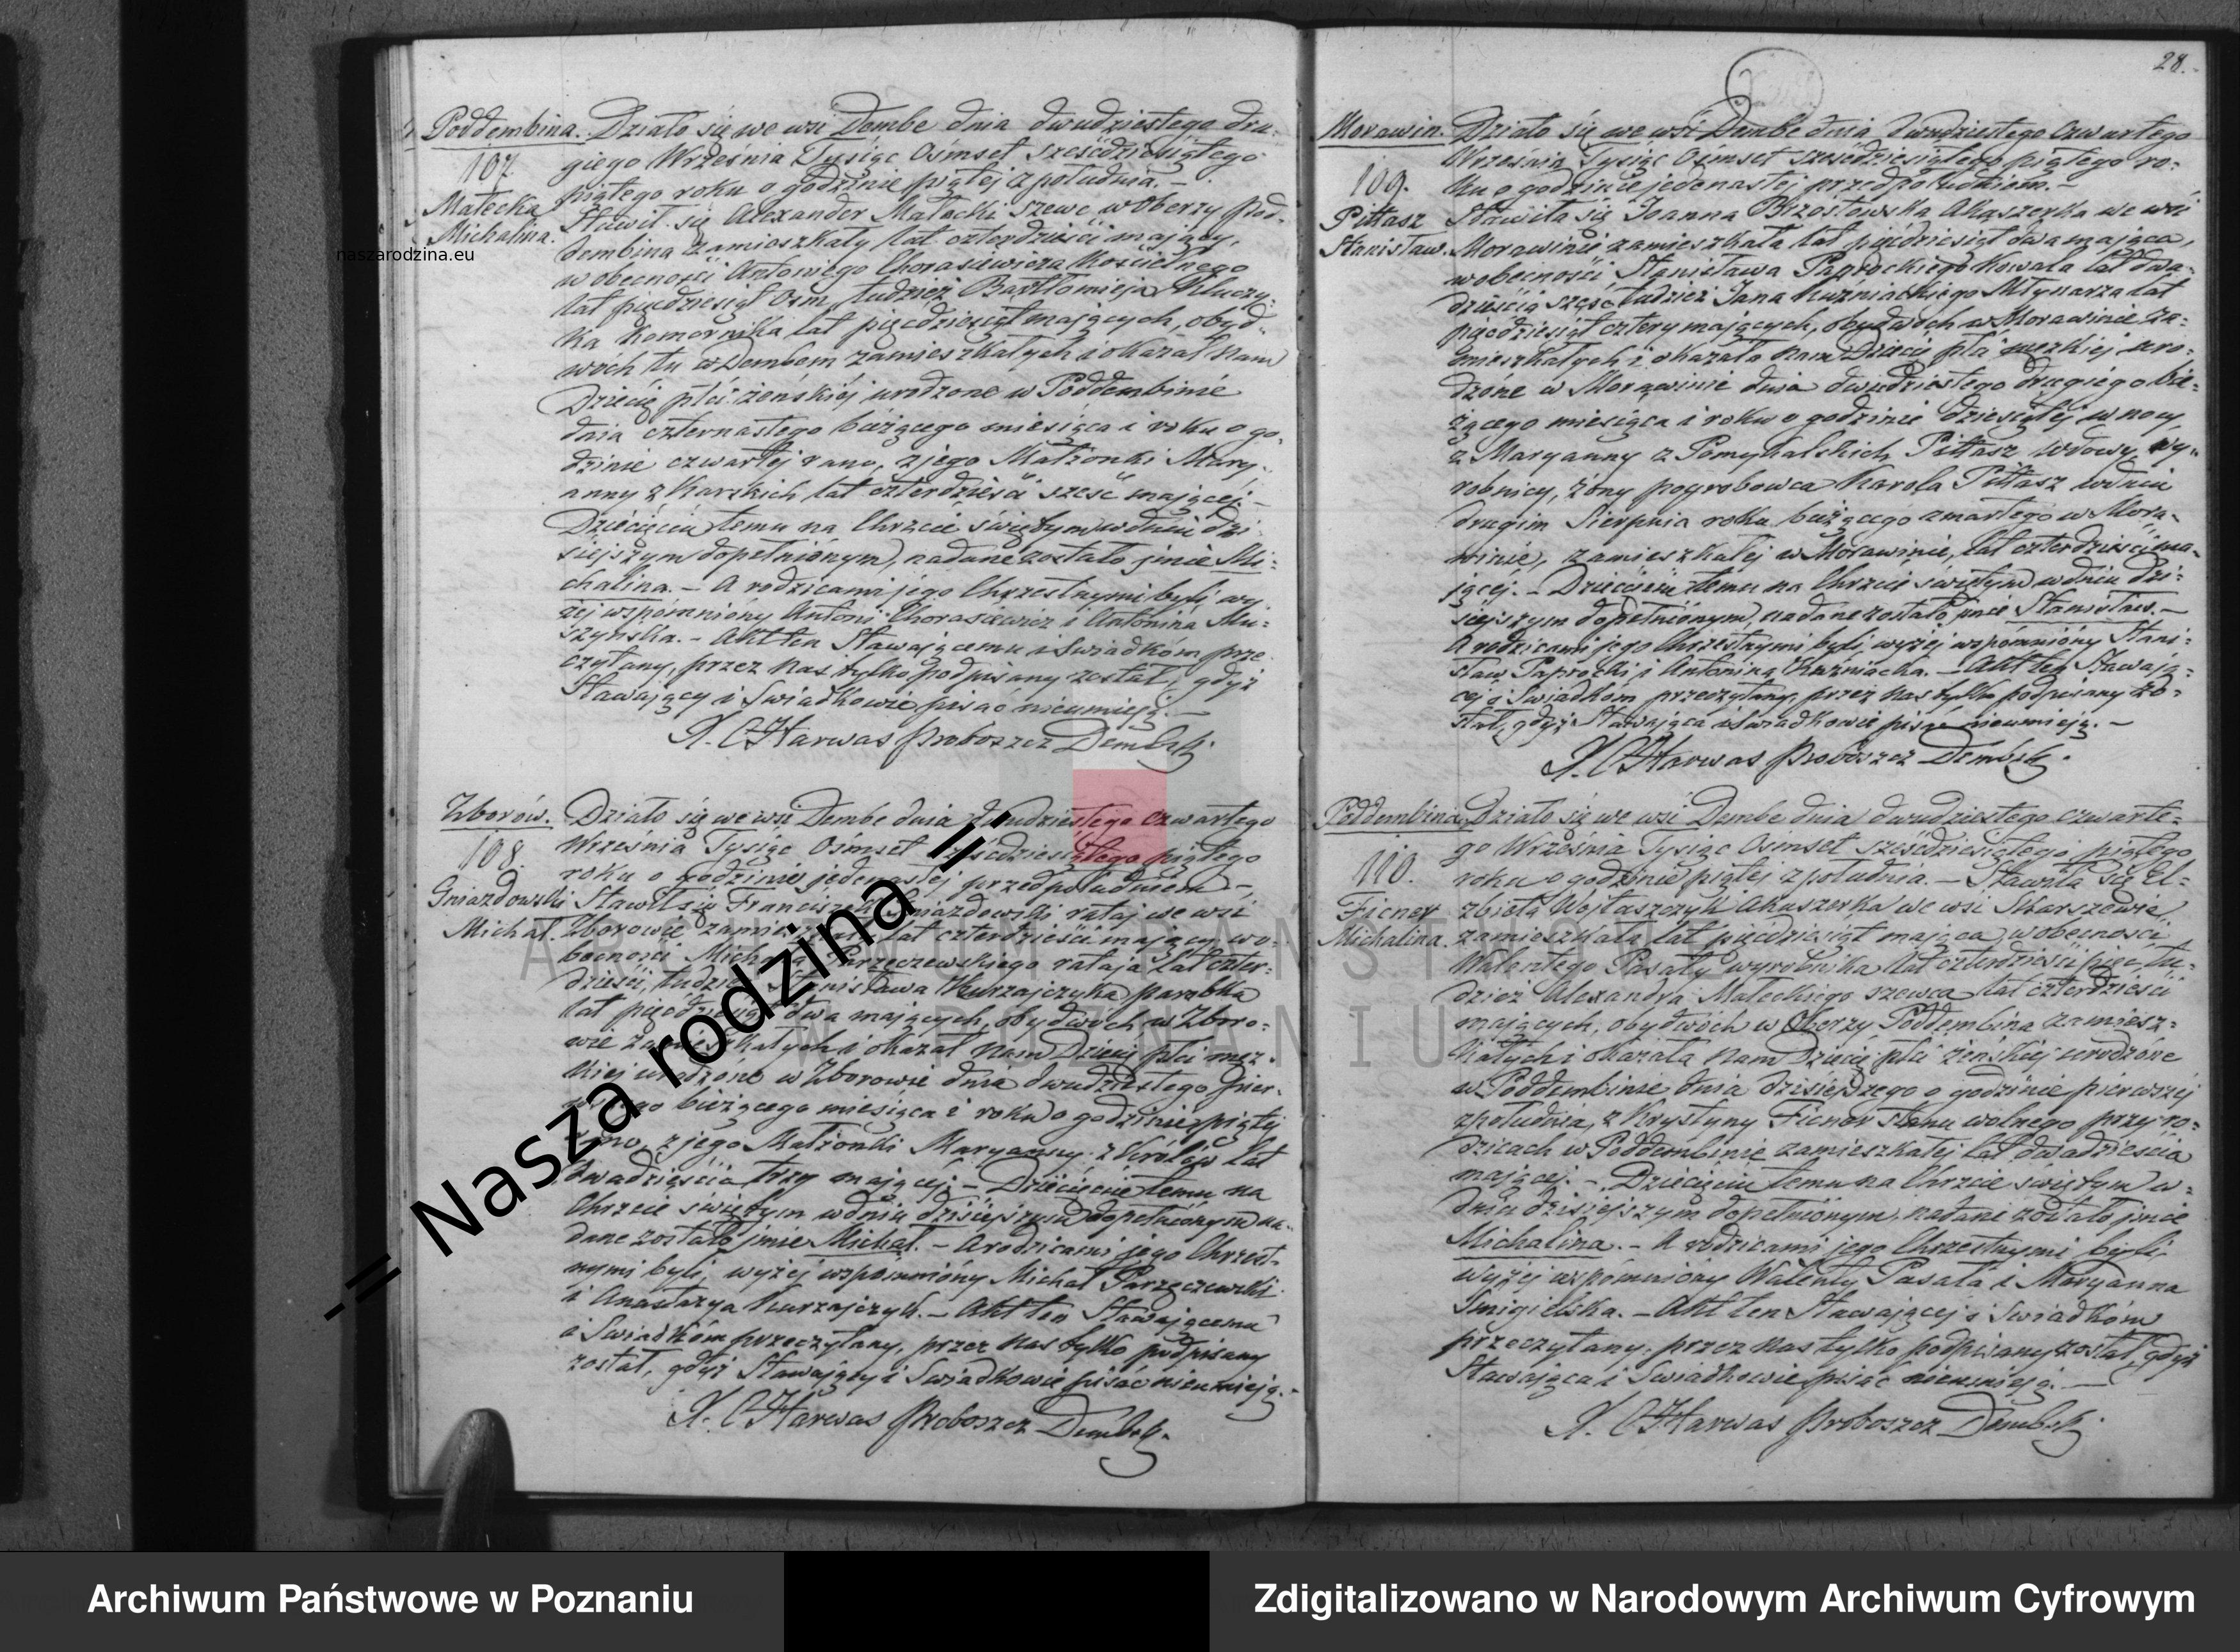 28.
Poddembina.
107.
Małecka
Michalina.
Działo się we wsi Dembe dnia dwudziestego dru-
giego Września Tysiąc Ośmset sześćdziesiątego
piątego roku o godzinie piątej z południa. –
Stawił się Alexander Małecki szewc w Oberzy Pod-
dembina zamieszkały lat czterdzieści mający,
w obecności Antoniego Chorasiewicza Kościelnego
lat pięćdziesiąt ośm, tudzież Bartłomieja Kluczy-
ka Komornika lat pięćdziesiąt mających, obyd-
wóch tu w Dembem zamieszkałych i okazał Nam
Dziecię płci żeńskiéj urodzone w Poddembinie
dnia czternastego bieżącego miesiąca i roku o go-
dzinie czwartéj rano, z jego Małżonki Mary-
anny z Karskich lat czterdzieści sześć mającej. –
Dziecięciu temu na Chrzcie świętym w dniu dzi-
siejszym dopełnionym, nadane zostało jmie Mi-
chalina. – A rodzicami jego Chrzestnymi byli wy-
żej wspomniony Antoni Chorasiewicz i Antonina Mu-
szyńska. – Akt ten Stawającemu i Świadkóm prze-
czytany, przez nas tylko podpisany został, gdyż
Stawający i Świadkowie pisać nieumieją. –
X. C. Harwas Proboszcz Dembsk.
Zborów.
108.
Gniazdowski
Michał.
Działo się we wsi Dembe dnia dwudziestego czwartego
Września Tysiąc Ośmset sześćdziesiątego piątego
roku o godzinie jedenastej przed południem. –
Stawił się Franciszek Gniazdowski rataj we wsi
Zborowie zamieszkały lat czterdzieści mający, w o-
becności Michała Parzęczewskiego rataja lat czter-
dzieści, tudzież Stanisława Kurzajczyka parobka
lat pięćdziesiąt dwa mających, obydwóch w Zboro-
wie zamieszkałych i okazał Nam Dziecię płci męz-
kiej urodzone w Zborowie dnia dwudziestego pier-
wszego bieżącego miesiąca i roku o godzinie piątej
rano, z jego Małżonki Maryanny z Królów lat
dwadzieścia trzy mającej. – Dziecięciu temu na
Chrzcie świętym w dniu dzisiejszym dopełnionym na-
dane zostało jmie Michał. – A rodzicami jego Chrzest-
nymi byli, wyżej wspomniony Michał Parzęczewski
i Anastazya Kurzajczyk. – Akt ten Stawającemu
i Świadkóm przeczytany, przez nas tylko podpisany
został, gdyż Stawający i Świadkowie pisać nieumieją. –
X. C. Harwas Proboszcz Dembsk.
Morawin.
109.
Pittasz
Stanisław.
Działo się we wsi Dembe dnia dwudziestego czwartego
Września Tysiąc Ośmset sześćdziesiątego piątego ro-
ku o godzinie jedenastej przed południem. –
Stawiła się Joanna Brzostowska Akuszerka we wsi
Morawinie zamieszkała lat pięćdziesiąt dwa mająca,
w obecności Stanisława Paprockiego Kowala lat dwa-
dzieścia sześć tudzież Jana Kuźniackiego Młynarza lat
pięćdziesiąt cztery mających, obydwóch w Morawinie za-
mieszkałych i okazała nam Dziecię płci męzkiej uro-
dzone w Morawinie dnia dwudziestego drugiego bie-
żącego miesiąca i roku o godzinie dziesiątej w nocy
z Maryanny z Pomykalskich Pittasz wdowy, wy-
robnicy, żony pogrobowca Karola Pittasz w dniu
drugim Sierpnia roku bieżącego zmarłego w Mora-
winie, zamieszkałej w Morawinie, lat czterdzieści ma-
jącej. – Dziecięciu temu na Chrzcie świętym w dniu dzi-
siejszym dopełnionym, nadane zostało jmie Stanisław. –
A rodzicami jego Chrzestnymi byli, wyżej wspomniony Stani-
sław Paprocki i Antonina Kuźniacka. – Akt ten Stawają-
cej i Świadkóm przeczytany, przez nas tylko podpisany zo-
stał, gdyż Stawająca i Świadkowie pisać nieumieją. –
X. C. Harwas Proboszcz Dembsk.
Poddembina.
110.
Ficner
Michalina.
Działo się we wsi Dembe dnia dwudziestego czwarte-
go Września Tysiąc Ośmset sześćdziesiątego piątego
roku o godzinie piątej z południa. – Stawiła się El-
zbieta Wojtaszczyk Akuszerka we wsi Skarszewie
zamieszkała lat pięćdziesiąt mająca, w obecności
Walentego Pasały wyrobnika lat czterdzieści pięć, tu-
dzież Alexandra Małeckiego szewca lat czterdzieści
mających, obydwóch w Oberzy Poddembina zamiesz-
kałych i okazała nam Dziecię płci żeńskiej urodzone
w Poddembinie dnia dzisiejszego o godzinie pierwszéj
z południa, z Krystyny Ficner stanu wolnego przy ro-
dzicach w Poddembinie zamieszkałej lat dwadzieścia
mającej. – Dziecięciu temu na Chrzcie świętym w
dniu dzisiejszym dopełnionym, nadane zostało jmie
Michalina. – A rodzicami jego Chrzestnymi byli
wyżej wspomniony Walenty Pasała i Maryanna
Śmigielska. – Akt ten Stawającej i Świadkóm
przeczytany, przez nas tylko podpisany został, gdyż
Stawająca i Świadkowie pisać nieumieją. –
X. C. Harwas Proboszcz Dembsk.
naszarodzina.eu
-= Nasza rodzina =-
ARCHIWUM PAŃSTWOWE
W POZNANIU
Archiwum Państwowe w Poznaniu
Zdigitalizowano w Narodowym Archiwum Cyfrowym